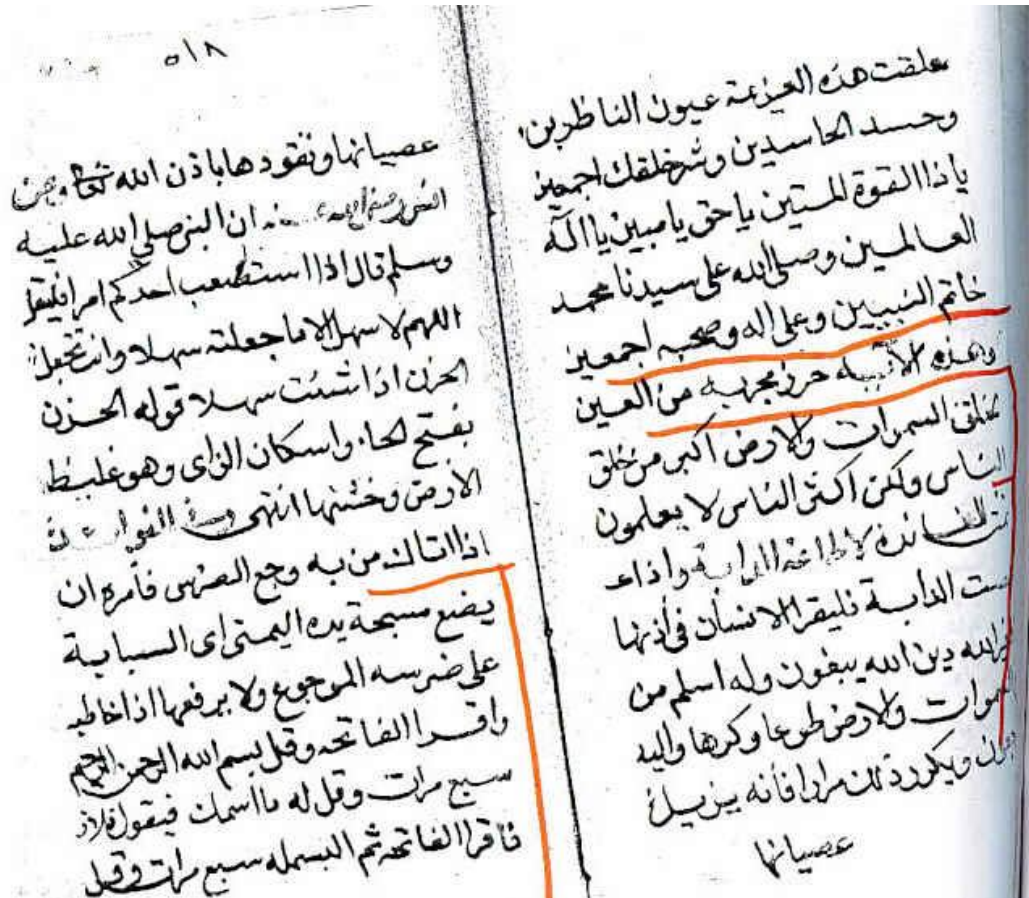 علقت هذه العزيمة عيون الناظرين
وحسد الحاسدين وشر خلقك اجمعين
ياذا القوة المتين يا حق يا مبين يا اله
العالمين وصلى الله على سيدنا محمد
خاتم النبيين وعلى اله وصحبه اجمعين
وهذه الأية حرز مجربه من العين
لخلق السموات والارض اكبر من خلق
الناس ولكن اكثر الناس لا يعلمون
لاطاعة الدابة واذا
الدابة فليقرا الانسان في أذنها
دين الله يبغون وله اسلم من
السموات والارض طوعا وكرها واليه
ويكرر ذلك مرارا فأنه يزيل
عصيانها
٥١٨
عصيانها وتقودها باذن الله تعالى وعن
ان النبي صلى الله عليه
وسلم قال اذا استصعب احدكم امرا فليقل
اللهم لا سهل الا ما جعلته سهلا وانت تجعل
الحزن اذا شئت سهلا قوله الحزن
بفتح الحاء واسكان الزاى وهو غليظ
الارض وخشنها انتهى
اذا اتاك من به وجع الضرس فأمره ان
يضع مسبحة يده اليمنى اى السبابة
على ضرسه الموجوع ولا يرفعها اذا خاطبه
واقرا الفاتحه وقل بسم الله الرحمن الرحيم
سبع مرات وقل له ما اسمك فيقول فلان
فاقرا الفاتحه ثم البسمله سبع مرات وقل